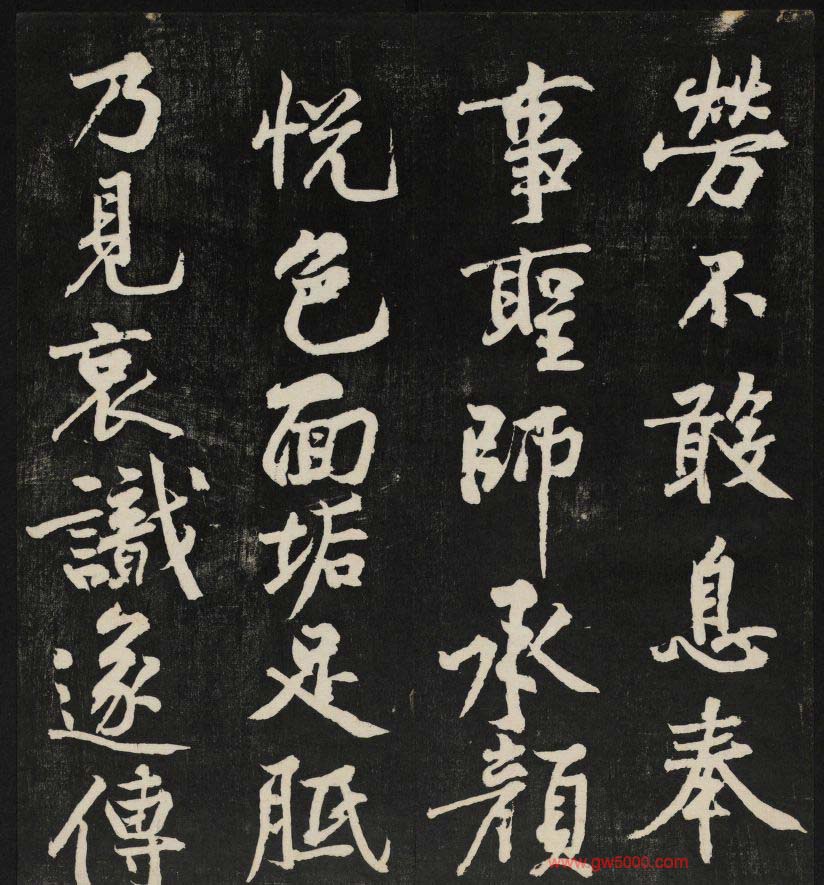 勞不敢息奉
事聖師承顏
悅色面垢足胝
乃見哀識遂傳
www.gw5000.com